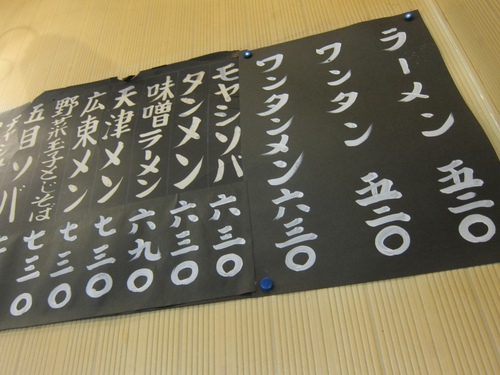 ラーメン 五二〇
ワンタン 五二〇
ワンタンメン 六三〇
モヤシソバ 六三〇
タンメン 六三〇
味噌ラーメン 六九〇
天津メン 七三〇
広東メン 七三〇
野菜玉子とじそば 七三〇
五目ソバ